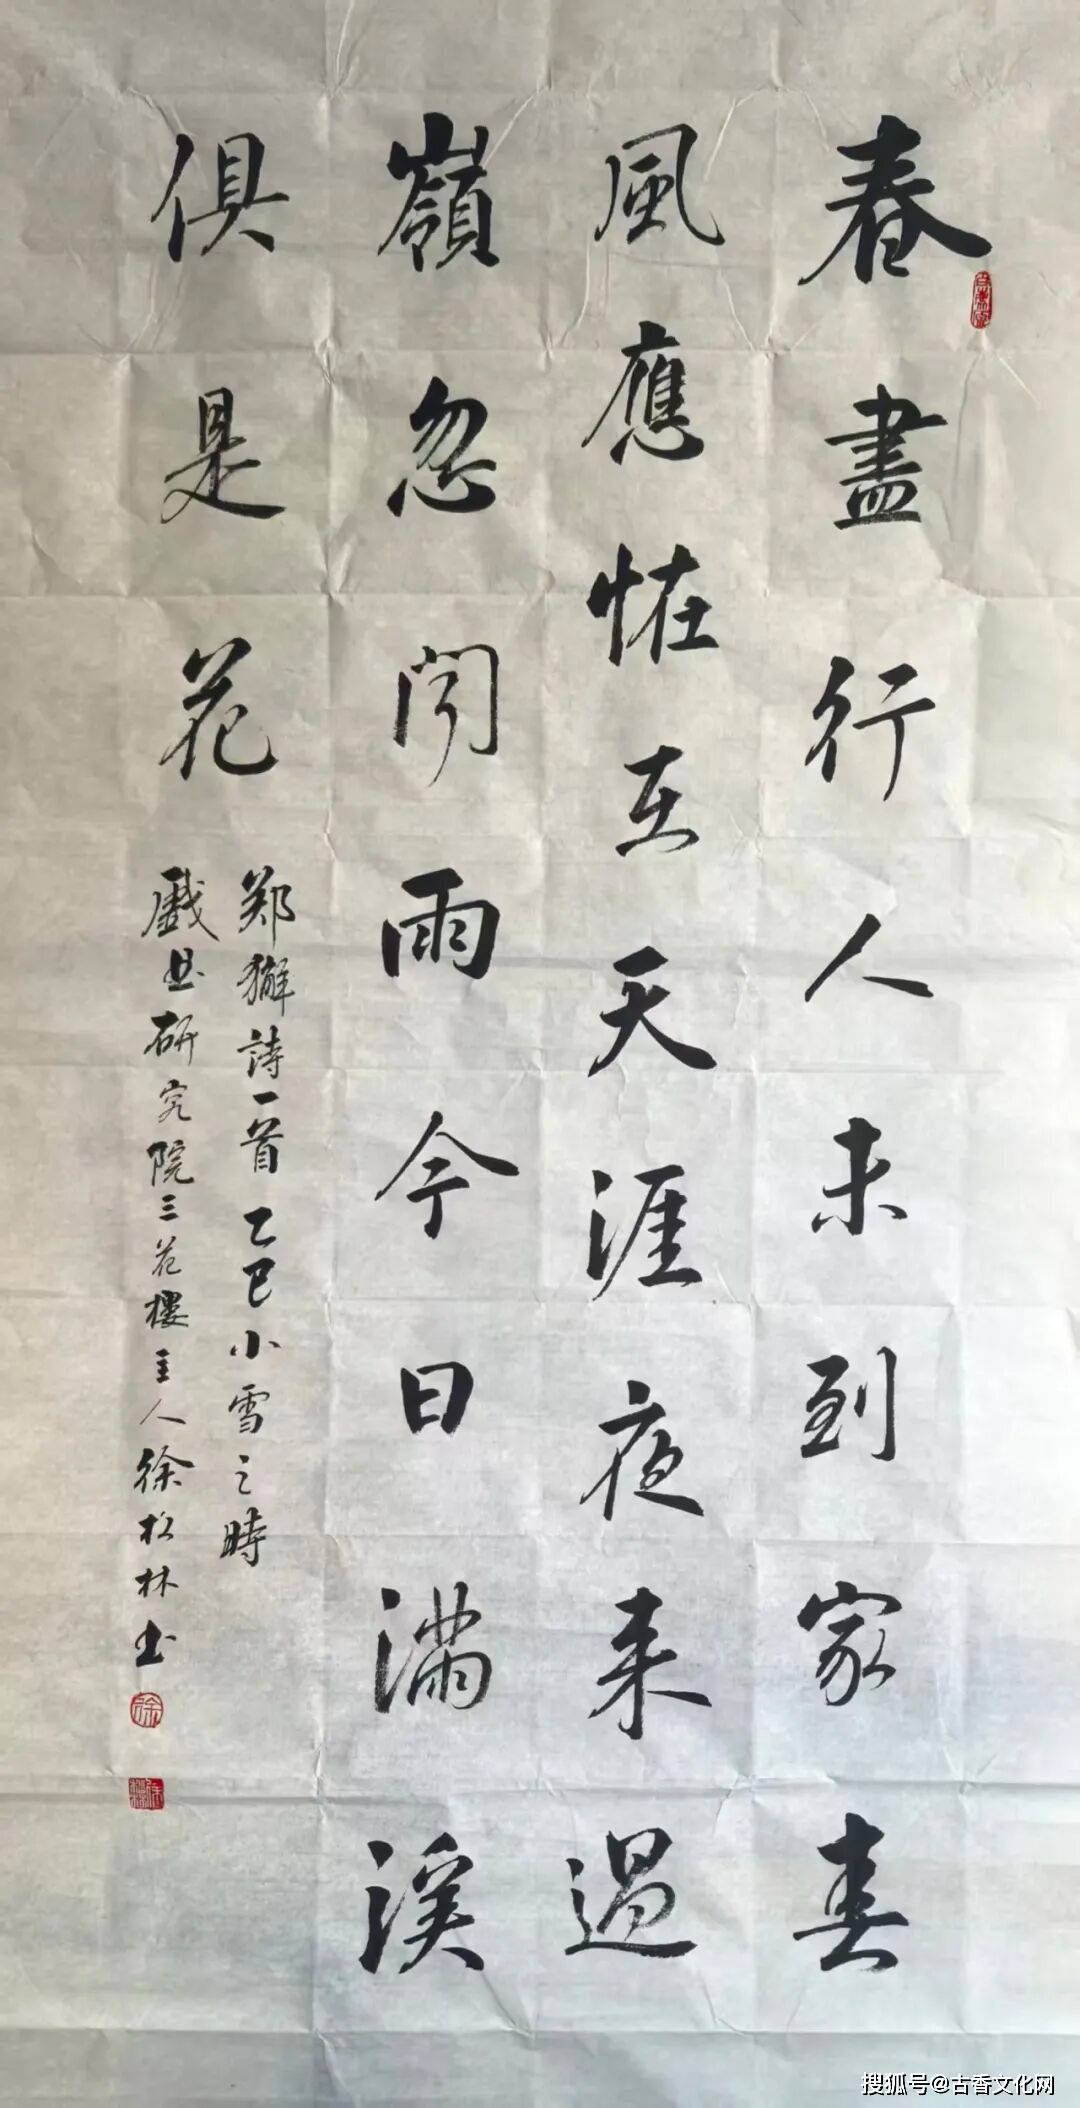 春盡行人未到家春
風應恠在天涯夜来過
嶺忽聞雨今日滿溪
俱是花
郑獬詩一首乙巳小雪之時
戲曲研究院三花樓主人徐松林书
搜狐号@古香文化网